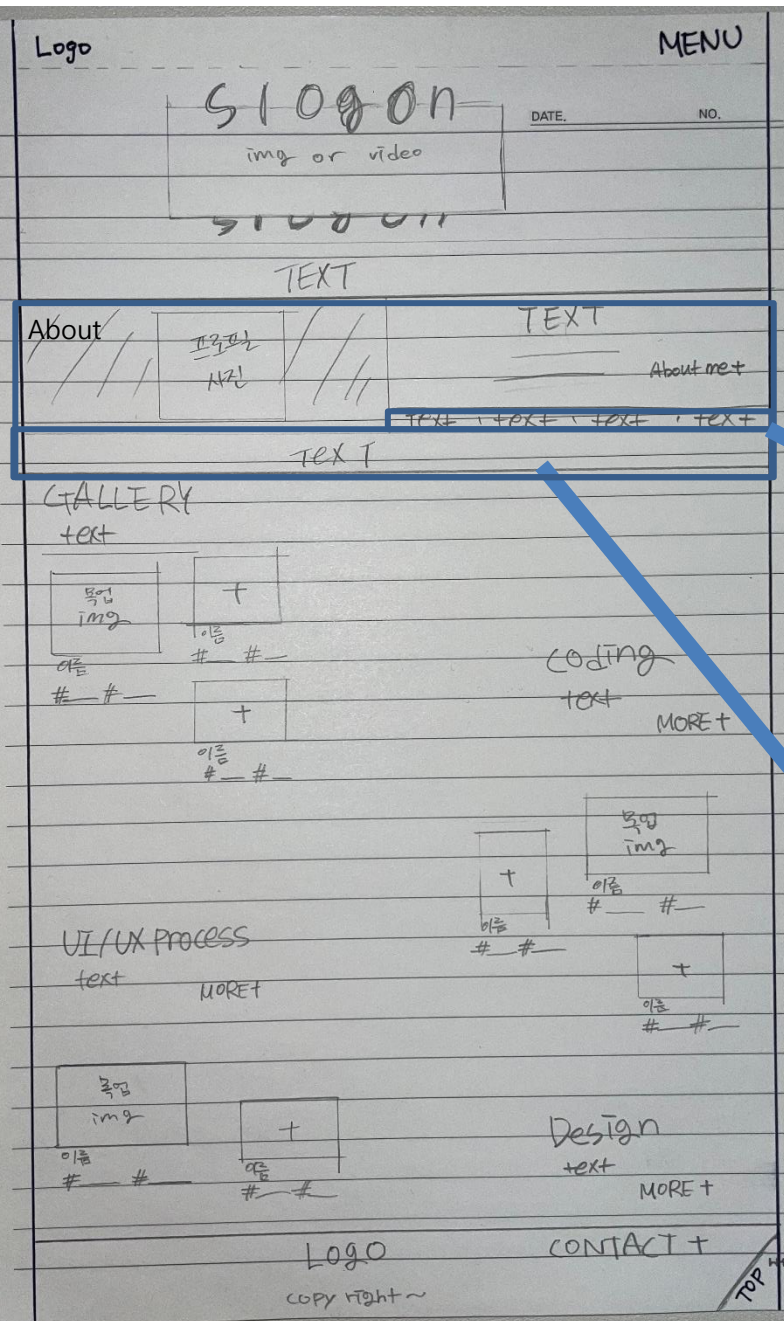 Logo
MENU
Slogan
DATE.
NO.
img or video
TEXT
About
프로필
사진
TEXT
About me+
text , text , text , text
TEXT
GALLERY
text
목업
img
+
이름
#__ #__
이름
#__ #__
+
이름
#__ #__
coding
text
MORE+
목업
img
+
이름
#__ #__
이름
#__ #__
UI/UX process
text
MORE+
+
이름
#__ #__
목업
img
+
이름
#__ #__
이름
#__ #__
Design
text
MORE+
LOGO
CONTACT +
copy right~
TOP